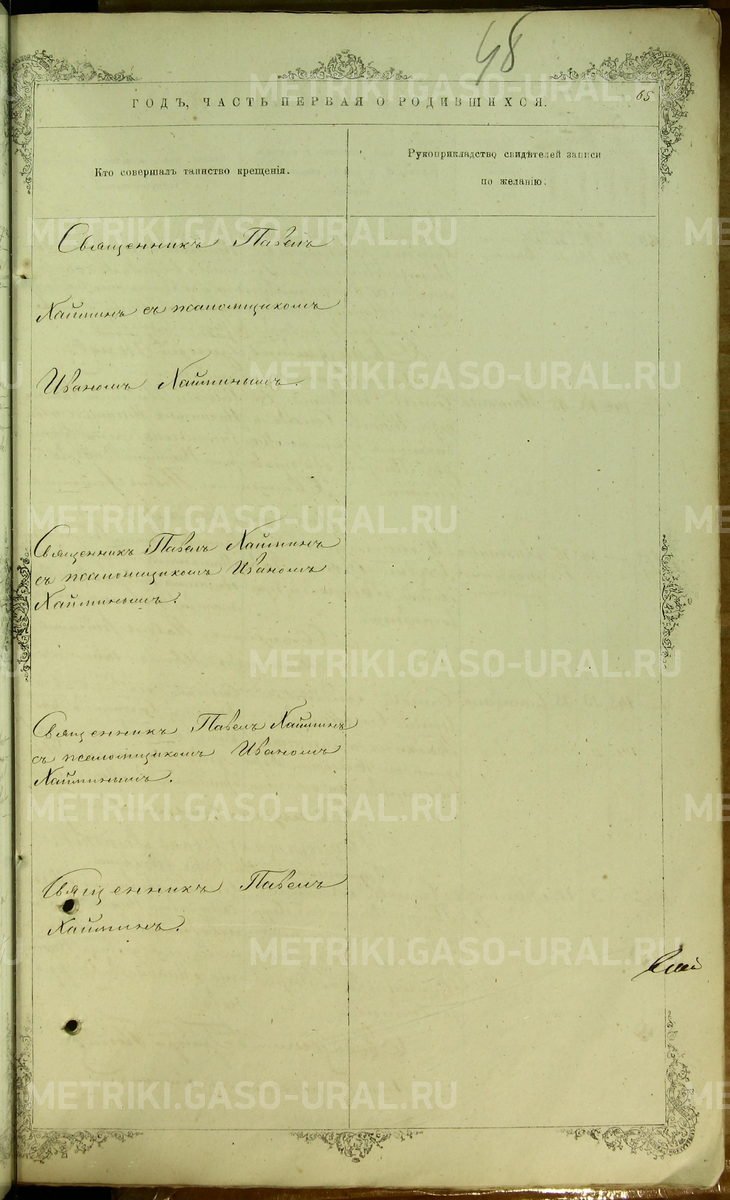 48
65
ГОДЪ, ЧАСТЬ ПЕРВАЯ О РОДИВШИХСЯ.
Кто совершалъ таинство крещенія.
Рукоприкладство свидѣтелей записи
по желанію.
Священникъ Павелъ
съ псаломщикомъ
Иваномъ
Священникъ Павелъ
съ псаломщикомъ Иваномъ
Священникъ Павелъ
съ псаломщикомъ Иваномъ
Священникъ Павелъ
METRIKI.GASO-URAL.RU